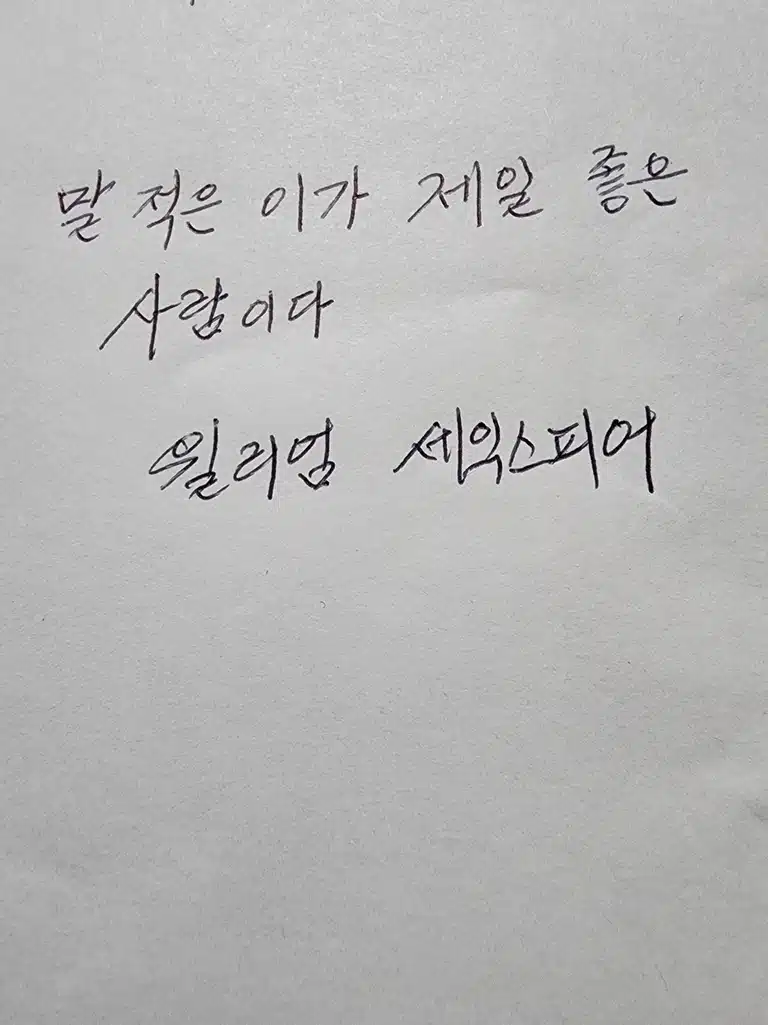 말 적은 이가 제일 좋은
사람이다
윌리엄 세익스피어